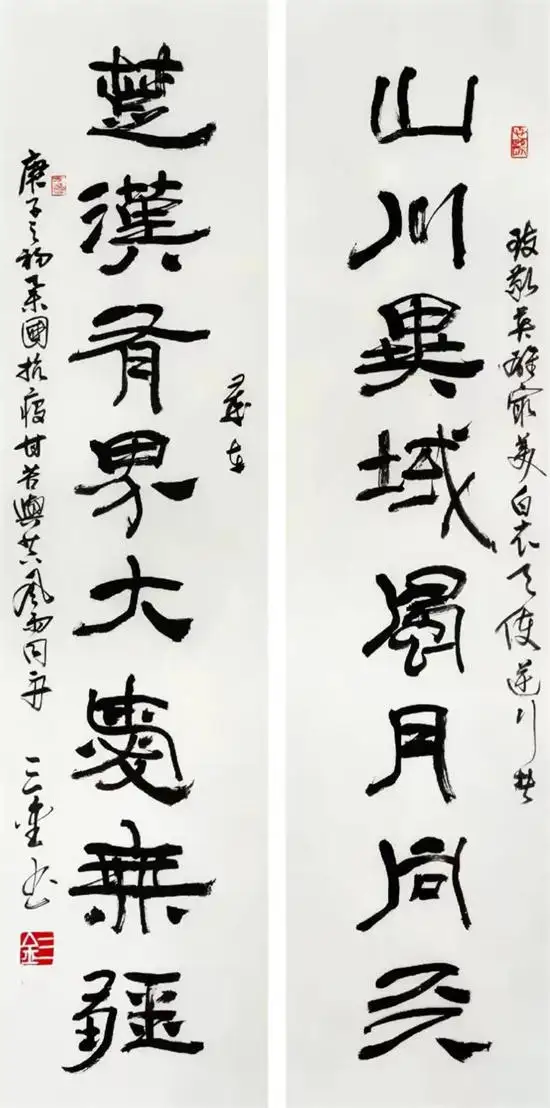 致敬英雄最美白衣天使逆行楚
山川異域風月同天
楚漢有界大愛無疆
庚子之初舉國抗疫甘苦與共風雨同舟 三金書